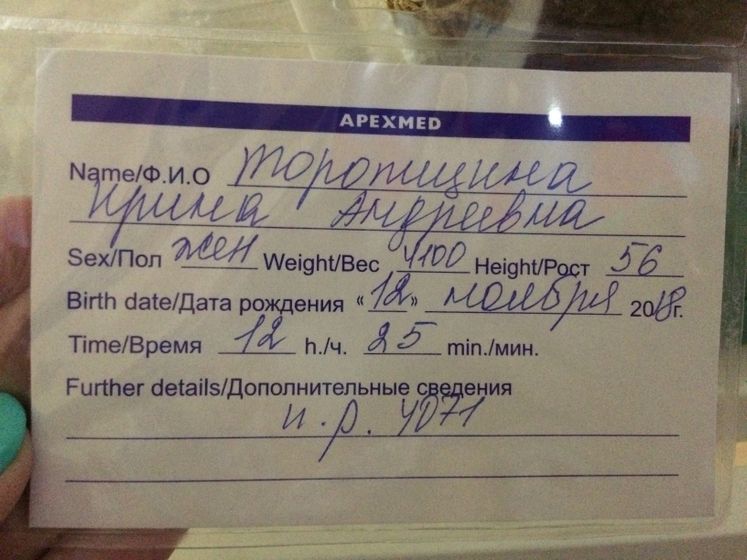 APEXMED
Name/Ф.И.О Торопщина
Ирина Андреевна
Sex/Пол жен Weight/Вес 4100 Height/Рост 56
Birth date/Дата рождения «12» ноября 2018г.
Time/Время 12 h./ч. 25 min./мин.
Further details/Дополнительные сведения
и.р. 4071